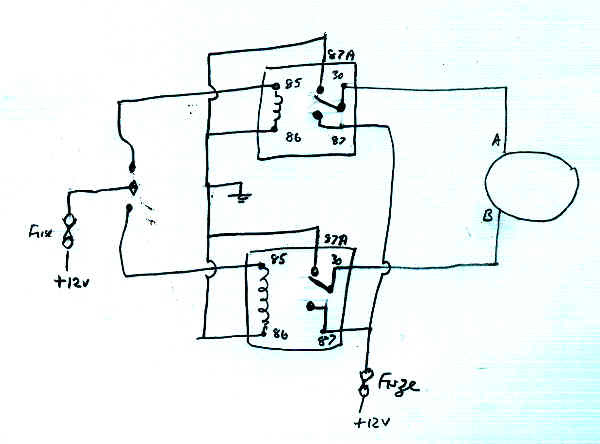 87A
85
30
86
87
A
B
Fuse
+12V
87A
85
30
86
87
Fuze
+12V